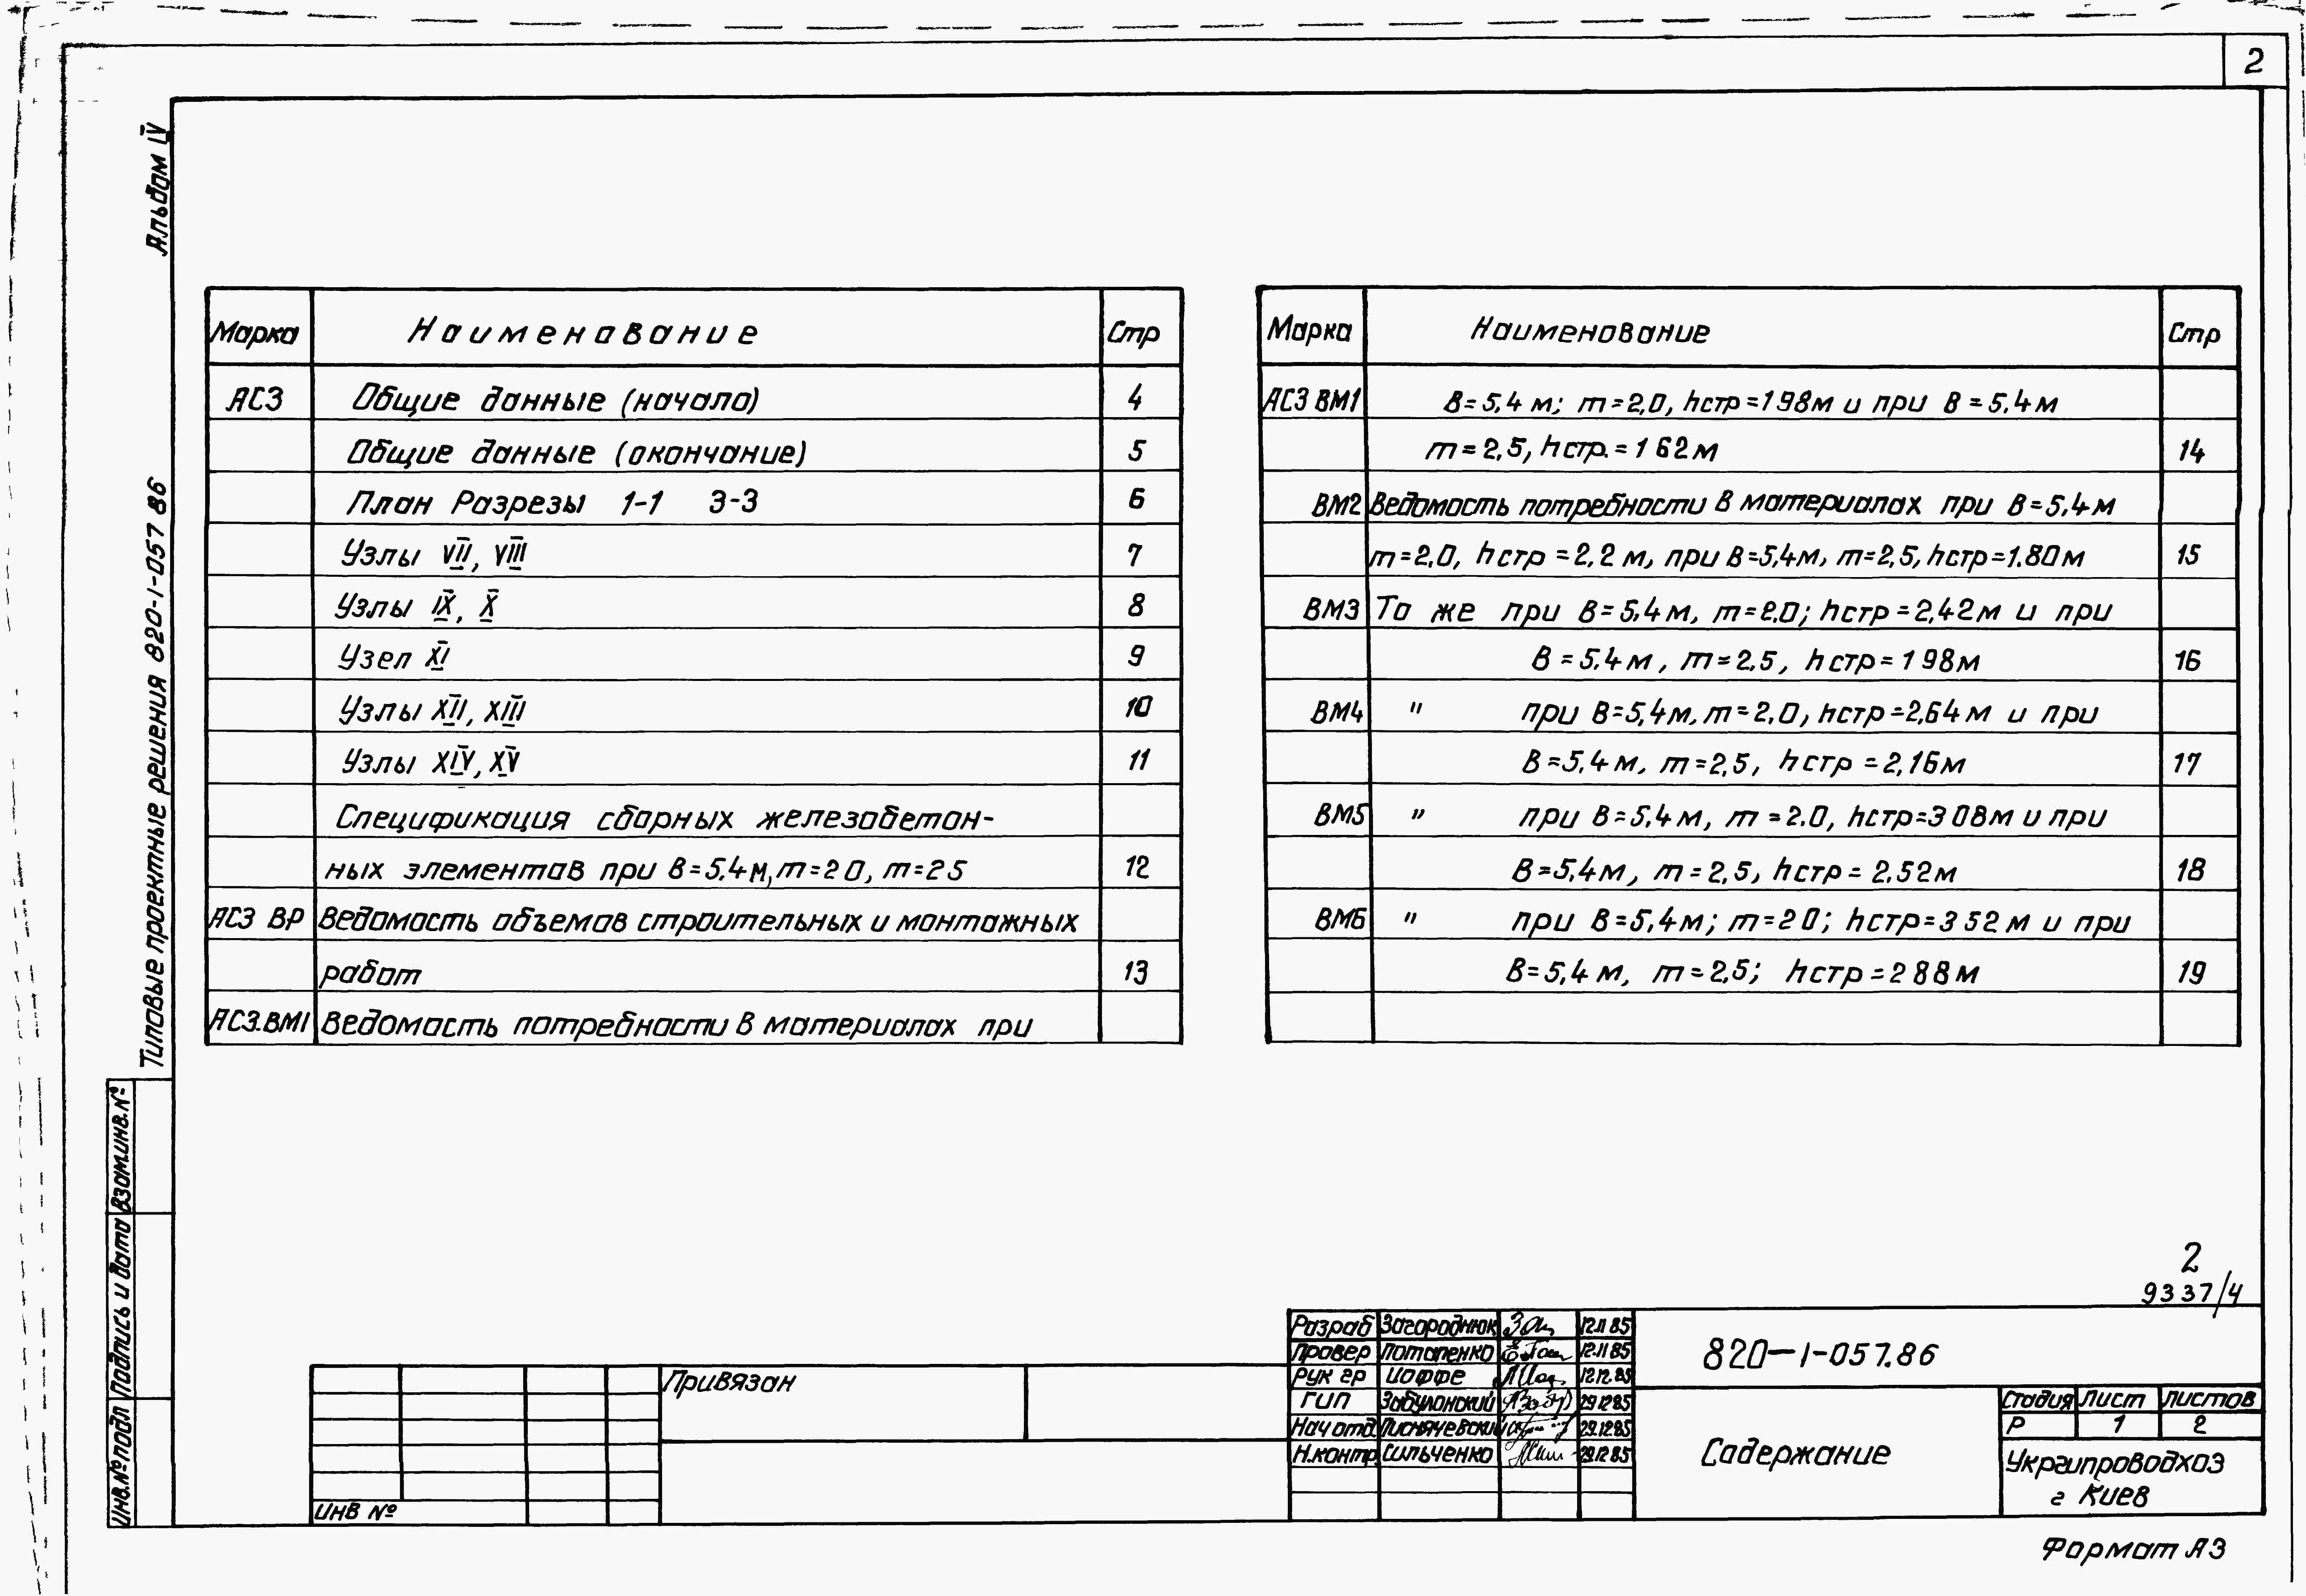 2
Альбом IV
Типовые проектные решения 820-1-057 86
Марка Наименование Стр
АС3 Общие данные (начало) 4
Общие данные (окончание) 5
План Разрезы 1-1 3-3 6
Узлы VII, VIII 7
Узлы IX, X 8
Узел XI 9
Узлы XII, XIII 10
Узлы XIV, XV 11
Спецификация сборных железобетон-
ных элементов при В=5,4м, m=2 0, m=2 5 12
АС3 ВР Ведомость объемов строительных и монтажных
работ 13
АС3.ВМ1 Ведомость потребности в материалах при
Марка Наименование Стр
АС3 ВМ1 В=5,4 м; m=2,0, hстр=1 98м и при В=5,4м
m=2,5, hстр.=1 62м 14
ВМ2 Ведомость потребности в материалах при В=5,4м
m=2,0, hстр=2,2 м, при В=5,4м, m=2,5, hстр=1.80м 15
ВМ3 То же при В=5,4м, m=2.0; hстр=2,42м и при
В=5,4м, m=2,5, hстр=1 98м 16
ВМ4 " при В=5,4м, m=2,0, hстр=2,64м и при
В=5,4м, m=2,5, hстр=2,16м 17
ВМ5 " при В=5,4м, m=2.0, hстр=3 08м и при
В=5,4м, m=2,5, hстр=2,52м 18
ВМ6 " при В=5,4м; m=2 0; hстр=3 52м и при
В=5,4м, m=2,5; hстр=2 88м 19
Взам.инв.№
Подпись и дата
Инв.№подл
2
9337/4
Привязан
Инв №
Разраб Загороднюк 12.11 85
Провер Потапенко 12.11 85
Рук гр Иоффе 12.12.85
ГИП Забулонский 29.12 85
Нач отд. 29.12.85
Н.контр. Сильченко 29.12 85
820-1-057.86
Содержание
Стадия Лист Листов
Р 1 2
Укргипроводхоз
г Киев
Формат А3